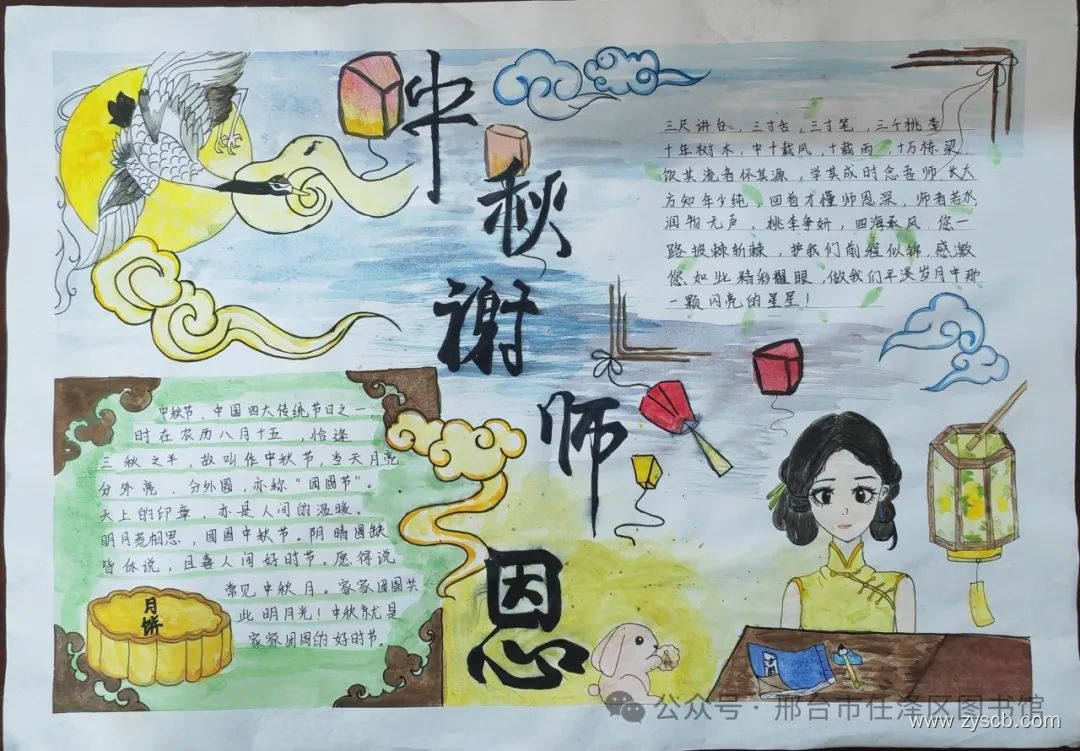 中秋谢师恩
三尺讲台，三寸舌，三寸笔，三千桃李
十年树木，十载风，十载雨，十万栋梁
饮其流者怀其源，学其成时念吾师，长大
方知年少纯，回首才懂师恩深，师者若水
润物无声，桃李争妍，四海春风，您一
路披荆斩棘，护我们前程似锦，感激
您如此精彩耀眼，做我们平淡岁月中那
一颗闪亮的星星！
中秋节，中国四大传统节日之一，
时在农历八月十五，恰逢
三秋之半，故叫作中秋节，当天月亮
分外亮、分外圆，亦称“团圆节”。
天上的印章，亦是人间的温暖。
明月惹相思，团圆中秋节。阴晴圆缺
皆休说，且喜人间好时节。愿得说
常见中秋月。家家团圆共
此明月光！中秋就是
家家团圆的好时节。
月饼
公众号·邢台市任泽区图书馆
www.zyscb.com